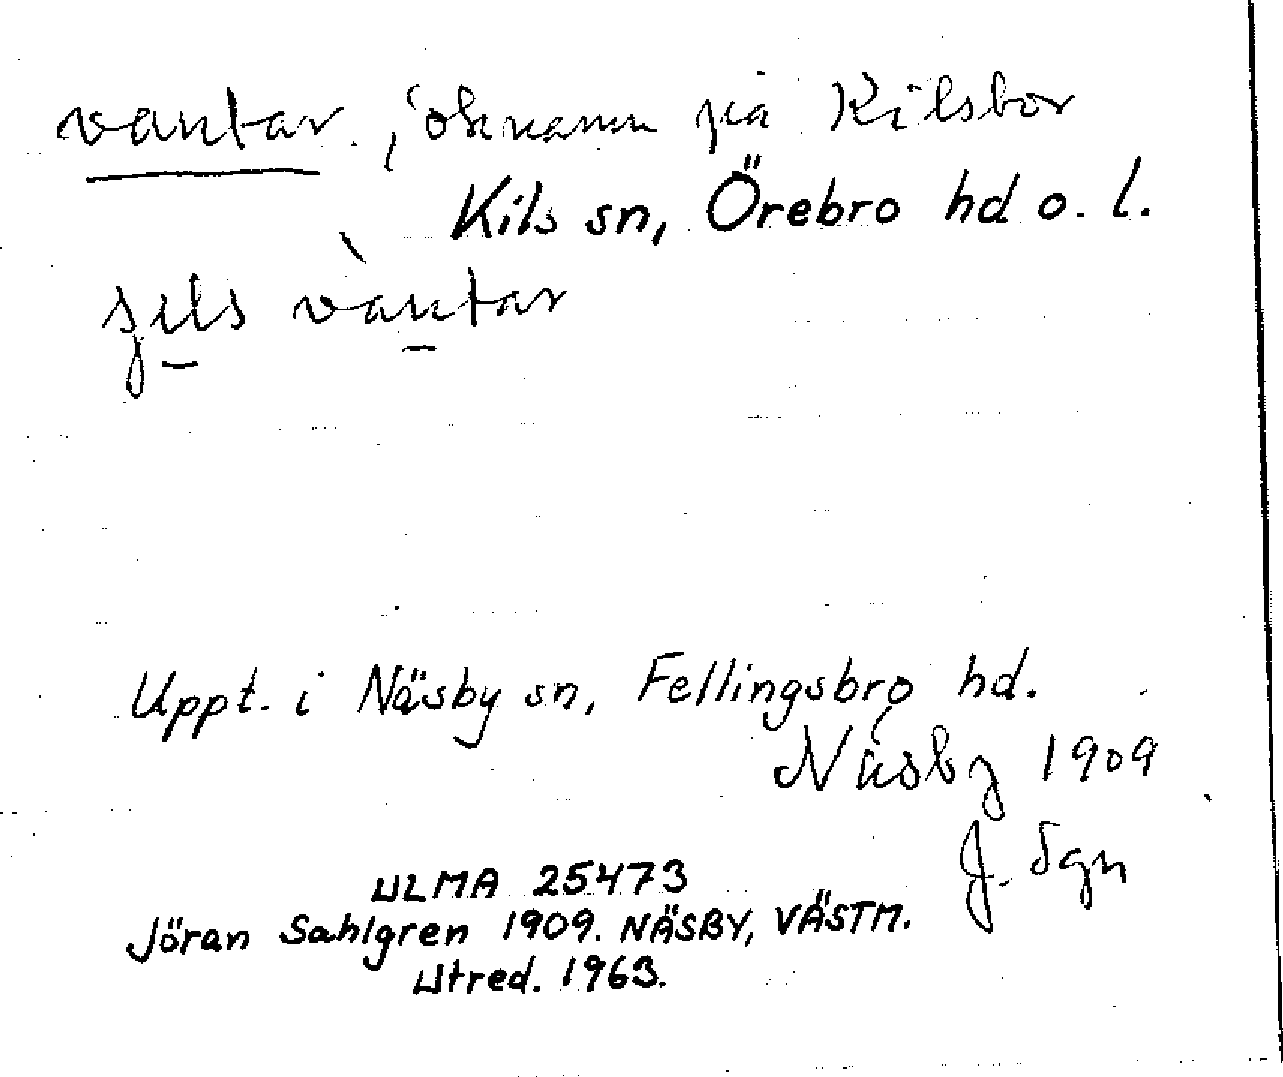 vantar, öknamn på Kilsbor
Kils sn, Örebro hd o. l.
vàntar
Uppt. i Näsby sn, Fellingsbro hd.
Näsby 1909
J. Sgn
ULMA 25473
Jöran Sahlgren 1909. NÄSBY, VÄSTM.
Utred. 1963.